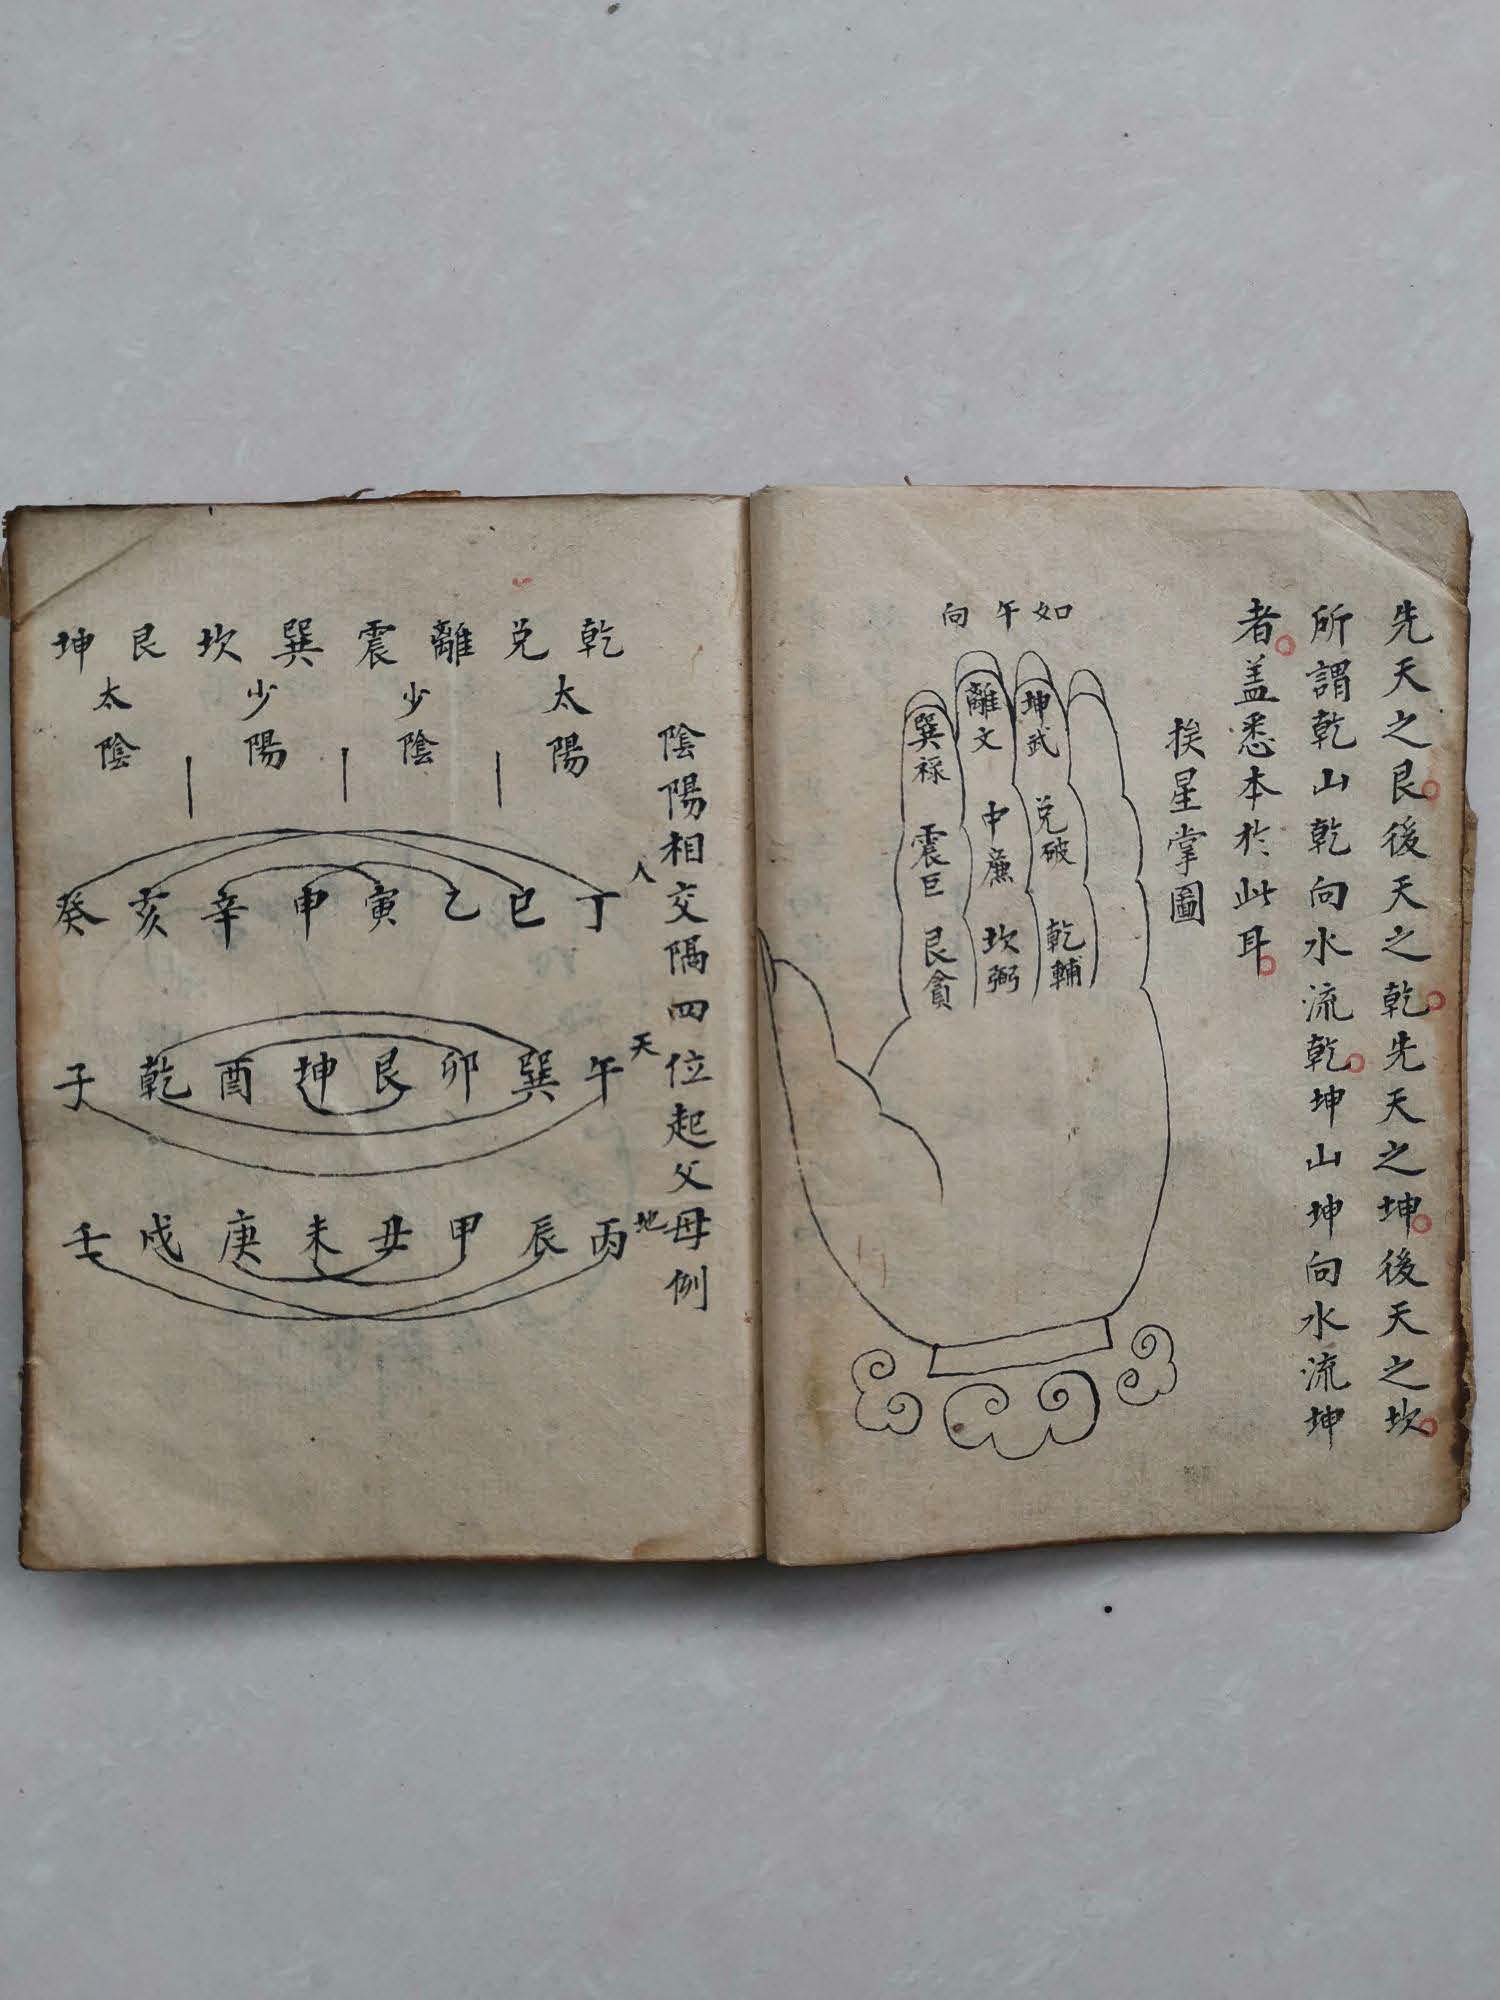 先天之艮後天之乾先天之坤後天之坎
所謂乾山乾向水流乾坤山坤向水流坤
者盖悉本於此耳
挨星掌圖
如午向
坤武
兌破
乾輔
離文
中廉
坎弼
巽祿
震巨
艮貪
陰陽相交隔四位起父母例
乾兌離震巽坎艮坤
太陽
少陰
少陽
太陰
人
丁巳乙寅申辛亥癸
天
午巽卯艮坤酉乾子
地
丙辰甲丑未庚戍壬